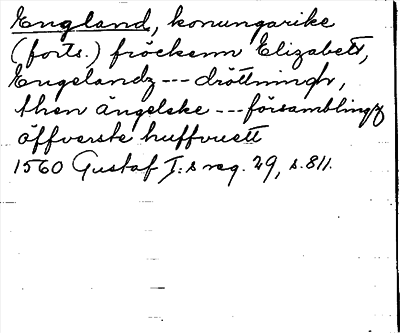 England, konungarike
(forts.) fröckenn Elizabett,
Engelandz --- dröttningh,
then ängelske --- församblingz
öffverste huffvuett
1560 Gustaf I:s reg. 29, s. 811.